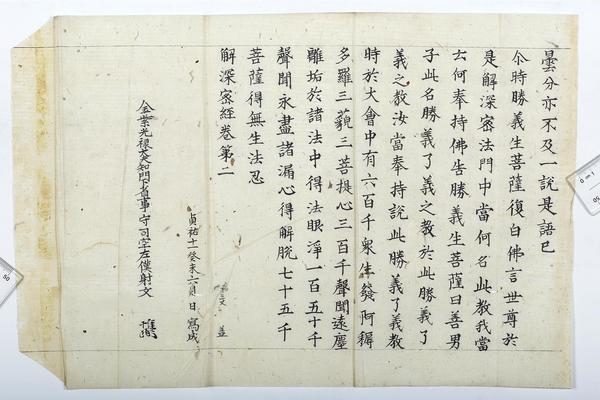 曇分亦不及一說是語已
尒時勝義生菩薩復白佛言世尊於
是解深密法門中當何名此教我當
云何奉持佛告勝義生菩薩曰善男
子此名勝義了義之教於此勝義了
義之教汝當奉持說此勝義了義教
時於大會中有六百千衆生發阿耨
多羅三藐三菩提心三百千聲聞遠塵
離垢於諸法中得法眼淨一百五十千
聲聞永盡諸漏心得解脫七十五千
菩薩得無生法忍
解深密經卷第二
貞祐十一癸未六月 日寫成
金紫光祿大夫知門下省事守司空左僕射文